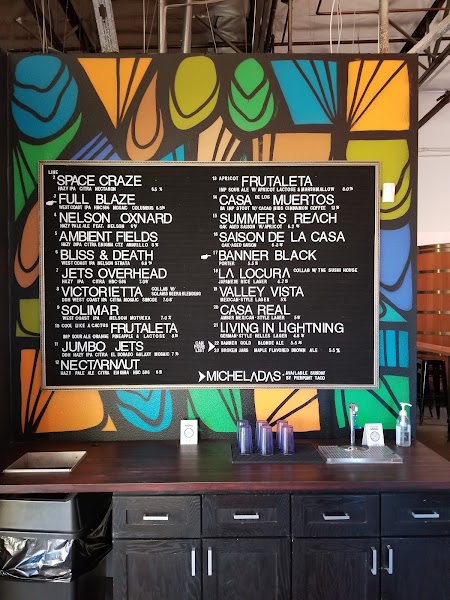 LINE
1 SPACE CRAZE
HAZY IPA CITRA NECTARON 6.5 %
2 FULL BLAZE
WEST COAST IPA HBC586 MOSAIC COLUMBUS
NELSON OXNARD
HAZY PALE ALE FEAT. NELSON
5 AMBIENT FIELDS
HAZY DIPA CITRA ENIGMA CTZ AMARILLO
BLISS & DEATH
WEST COAST IPA NELSON STRATA
7 JETS OVERHEAD
HAZY IPA CITRA HBC-586
VICTORIETTA COLLAB W/
DDH WEST COAST IPA CITRA MOSAIC SIMCOE 7.0%
SOLIMAR
WEST COAST IPA NELSON MOTUEKA 7.0%
10 COOL LIKE A CACTUS FRUTALETA
IMP SOUR ALE ORANGE PINEAPPLE & LACTOSE
11 JUMBO JETS
DDH HAZY IPA CITRA EL DORADO GALAXY MOSAIC 7%
NECTARNAUT
HAZY PALE ALE CITRA ENIGMA HBC 586 5 %
13 APRICOT FRUTALETA
IMP SOUR ALE W/APRICOT LACTOSE & MARSHMALLOW 8.0%
CASA DE LOS MUERTOS
BA IMP STOUT W/CACAO NIBS CINNAMON COFFEE
15 SUMMER'S REACH
OAK AGED SAISON W/APRICOT
SAISON DE LA CASA
OAK-AGED SAISON
17 BANNER BLACK
PORTER
18 LA LOCURA COLLAB W/THE SUSHI HOUSE
JAPANESE RICE LAGER 4.7 %
VALLEY VISTA
MEXICAN-STYLE LAGER 5%
20 CASA REAL
AMBER MEXICAN-STYLE LAGER 5%
21 LIVING IN LIGHTNING
GERMAN-STYLE HELLES LAGER
22 BANNER GOLD BLONDE ALE
23 BROKEN JARS MAPLE FLAVORED BROWN ALE 5.5 %
MICHELADAS AVAILABLE SUNDAY
BY PIERPONT TACO